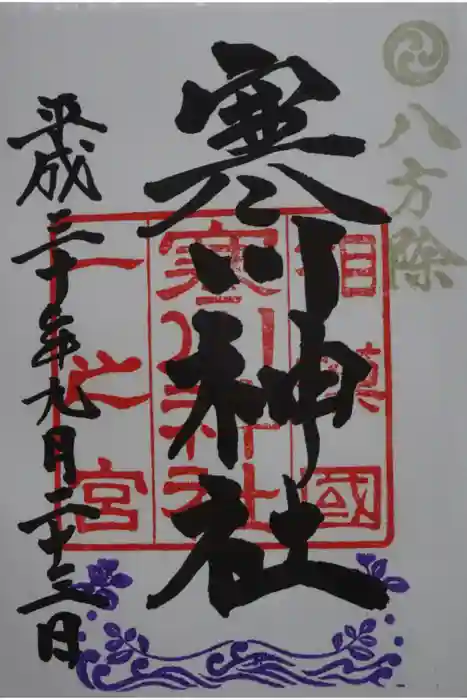 八方除
寒川神社
相模國
寒川神社
一之宮
平成二十年九月二十三日